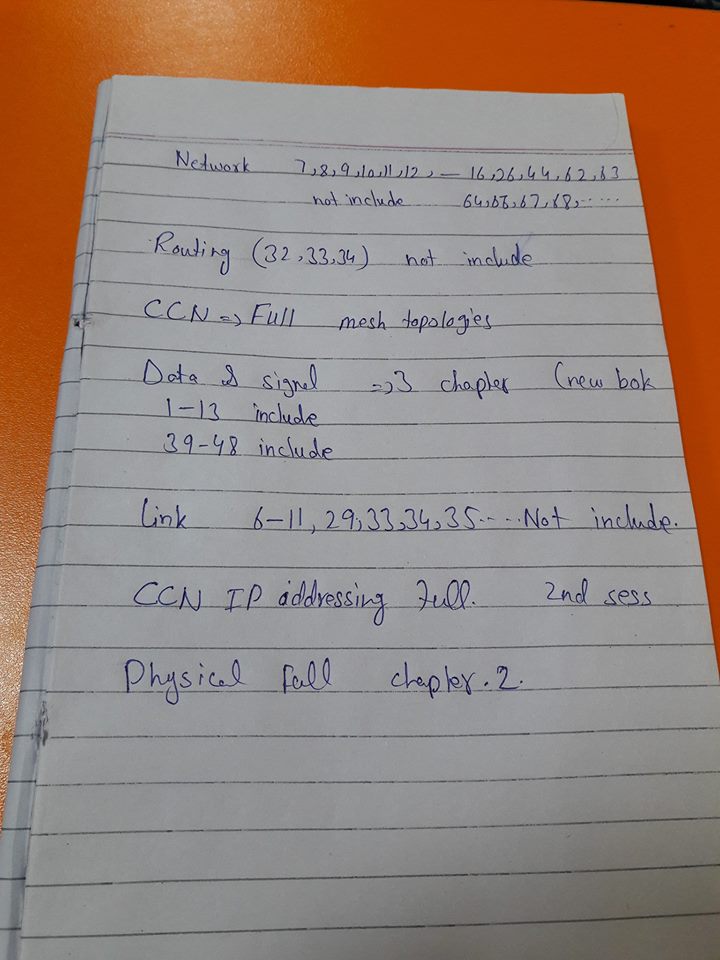 Network 7,8,9,10,11,12, — 16,26,44,62,63
not include 64,66,67,68, ......
Routing (32,33,34) not include
CCN => Full mesh topologies
Data & signal =>3 chapter (new bok
1-13 include
39-48 include
Link 6-11, 29,33,34,35.... Not include.
CCN IP addressing Full. 2nd sess
Physical full chapter.2.